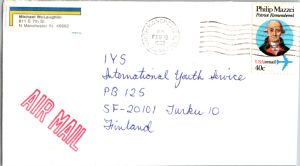 Michael McLaughlin
611 E 7th St
N Manchester IN 46962
Philip Mazzei
Patriot Remembered
USAirmail
40c
IYS
International Youth Service
PB 125
SF-20101 Turku 10
Finland
AIR MAIL